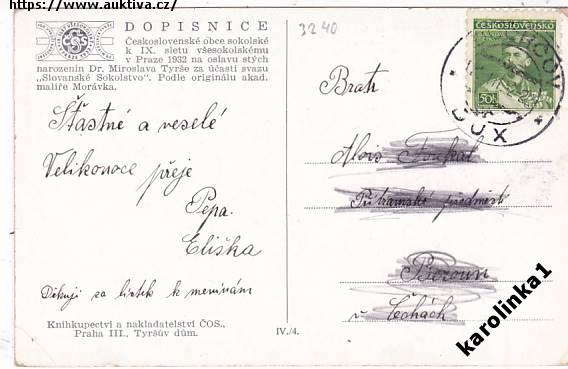 https://www.auktiva.cz/
DOPISNICE
Československé obce sokolské
k IX. sletu všesokolskému
v Praze 1932 na oslavu stých
narozenin Dr. Miroslava Tyrše za účasti svazu
„Slovanské Sokolstvo". Podle originálu akad.
malíře Morávka.
3240
ČESKOSLOVENSKO
50h
DUX
Šťastné a veselé
Velikonoce přeje
Pepa.
Eliška
Děkuji za lístek k meninám
Bratr
Alois
předměstí
Beroun
v Čechách
Knihkupectví a nakladatelství ČOS.,
Praha III., Tyršův dům.
IV./4.
karolinka1